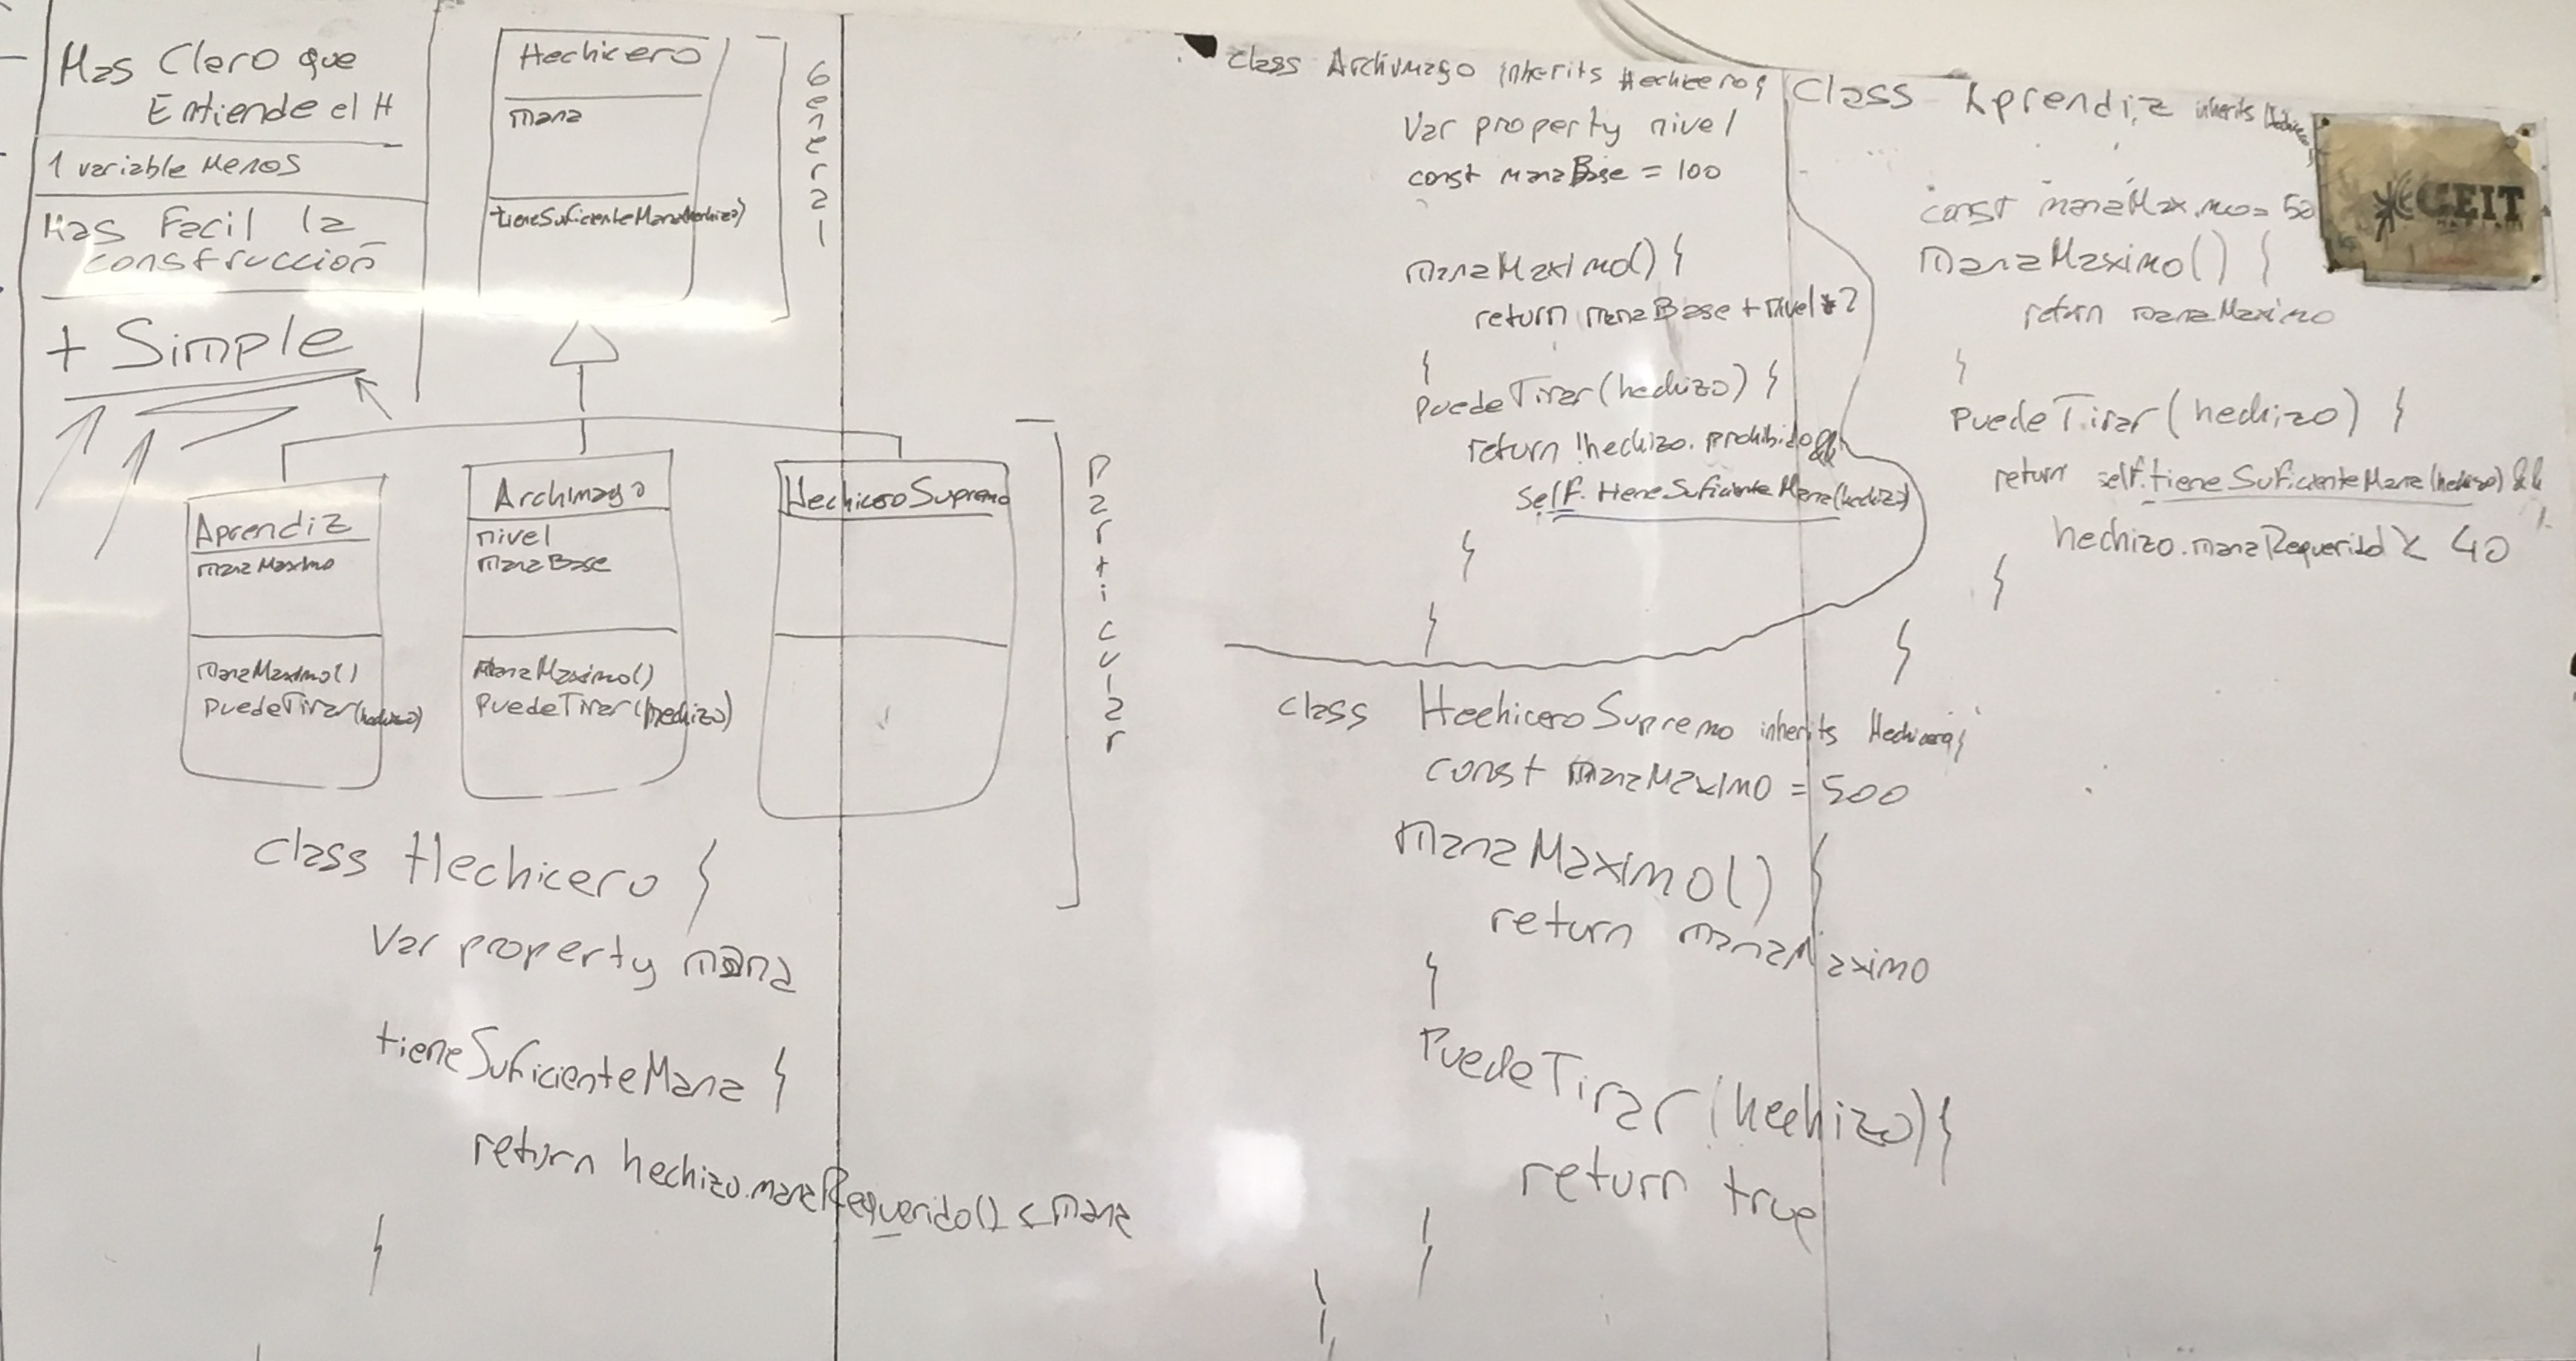 Mas Claro que
Entiende el H
1 variable Menos
Mas Facil la
construccion
+ Simple
Hechicero
mana
tieneSuficienteMana(hechizo)
General
Aprendiz
manaMaximo
manaMaximo()
puedeTirar(hechizo)
Archimago
nivel
manaBase
manaMaximo()
puedeTirar(hechizo)
HechiceroSupremo
Particular
class Hechicero {
Var property mana
tieneSuficienteMana {
return hechizo.manaRequerido() < mana
}
class Archimago inherits Hechicero {
Var property nivel
const manaBase = 100
manaMaximo() {
return manaBase + nivel * 2
}
puedeTirar(hechizo) {
return !hechizo.prohibido &&
self.tieneSuficienteMana(hechizo)
}
}
class HechiceroSupremo inherits Hechicero {
const manaMaximo = 500
manaMaximo() {
return manaMaximo
}
PuedeTirar(hechizo) {
return true
}
}
Class Aprendiz inherits
const manaMaximo = 50
manaMaximo() {
return manaMaximo
}
PuedeTirar(hechizo) {
return self.tieneSuficienteMana(hechizo) &&
hechizo.manaRequerido < 40
}
}
CEIT